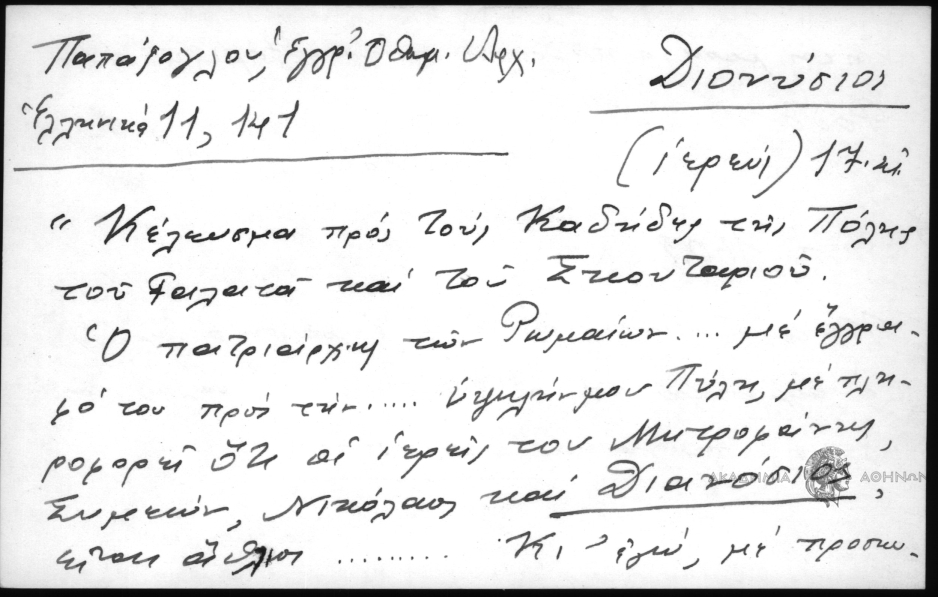 Παπάζογλου, Ἔγγρ. Ὀθωμ. Ἀρχ.
Διονύσιος
Ἑλληνικά 11, 141
(ἱερεύς) 17. αἰ.
" Κέλευσμα πρός τούς Καδῆδες τῆς Πόλης
τοῦ Γαλατᾶ καί τοῦ Σκουταριοῦ.
Ὁ πατριάρχης τῶν Ρωμαίων ... μέ ἔγγρα-
φό του πρός τήν ..... ὑψηλήν μου Πύλη, μέ πλη-
ροφορεῖ ὅτι οἱ ἱερεῖς του Μητροφάνης,
Συμεών, Νικόλαος καί Διονύσιος,
εἶναι ......... Κι' ἐγώ, μέ προσκυ-
ΑΚΑΔΗΜΙΑ ΑΘΗΝΩΝ